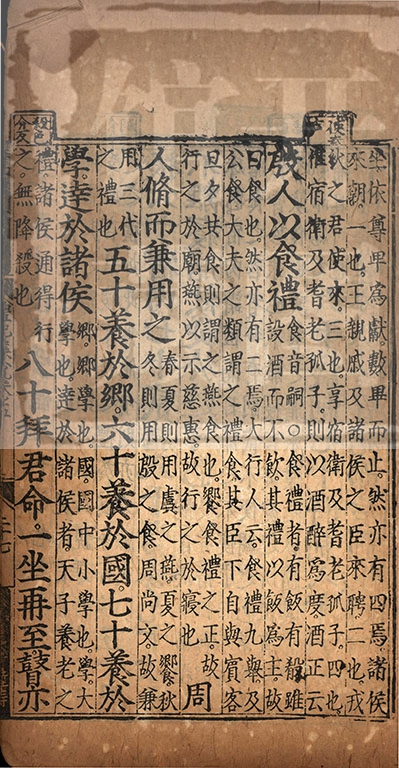 坐依尊卑爲獻數畢而止。然亦有四焉諸侯
來朝一也。王親戚及諸侯之臣來聘。二也。戎
狄之君使來。三也。享宿衛及耆老孤子。四也。
惟宿衛及耆老孤子。則以酒醉爲度。酒正云
殷人以食禮
食音嗣。食禮者有飯有殽雖
設酒而不飲其禮以飯爲主故
曰食也。然亦有二焉。大行人云食禮九舉及
公食大夫之類謂之禮食其臣下自與賓客
旦夕共食則謂之燕食也。饗食禮之正。故
行之於廟燕以示慈惠。故行之於寢也
周
人脩而兼用之
春夏則用虞之燕夏之饗。秋
冬則用殷之食。周尚文。故兼
用三代
之禮也
五十養於鄕。六十養於國。七十養於
學。逹於諸侯
鄕。鄕學也。國。國中小學也。學。大
學也。逹於諸侯者。天子養老之
禮。諸侯通得行
之。無降殺也
八十拜君命。一坐再至瞽亦
殺色